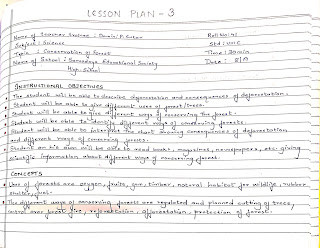 LESSON PLAN - 3
Name of Teacher Trainee : Damini P.
Roll No: 41
Subject : Science
Std : VIII C
Topic : Conservation of forest
Time : 30min
Name of School : Sarvodaya Educational Society
High School
INSTRUCTIONAL OBJECTIVES
The student will be able to describe deforestation and consequences of deforestation.
Student will be able to give different uses of forest/trees.
Student will be able to give different ways of conserving the forest.
Student will be able to identify different ways of conserving forests
Student will be able to interpret the chart showing consequences of deforestation
and different ways of conserving forests.
Student on his own will be able to read books, magazines, newspapers, etc giving
scientific information about different ways of conserving forest.
CONCEPTS
Uses of forests are oxygen, fruits, gum, timber, natural habitat for wildlife, rubber
shelter, fuel.
The different ways of conserving forest are regulated and planned cutting of trees,
control over forest fire, reforestation, afforestation, protection of forest.